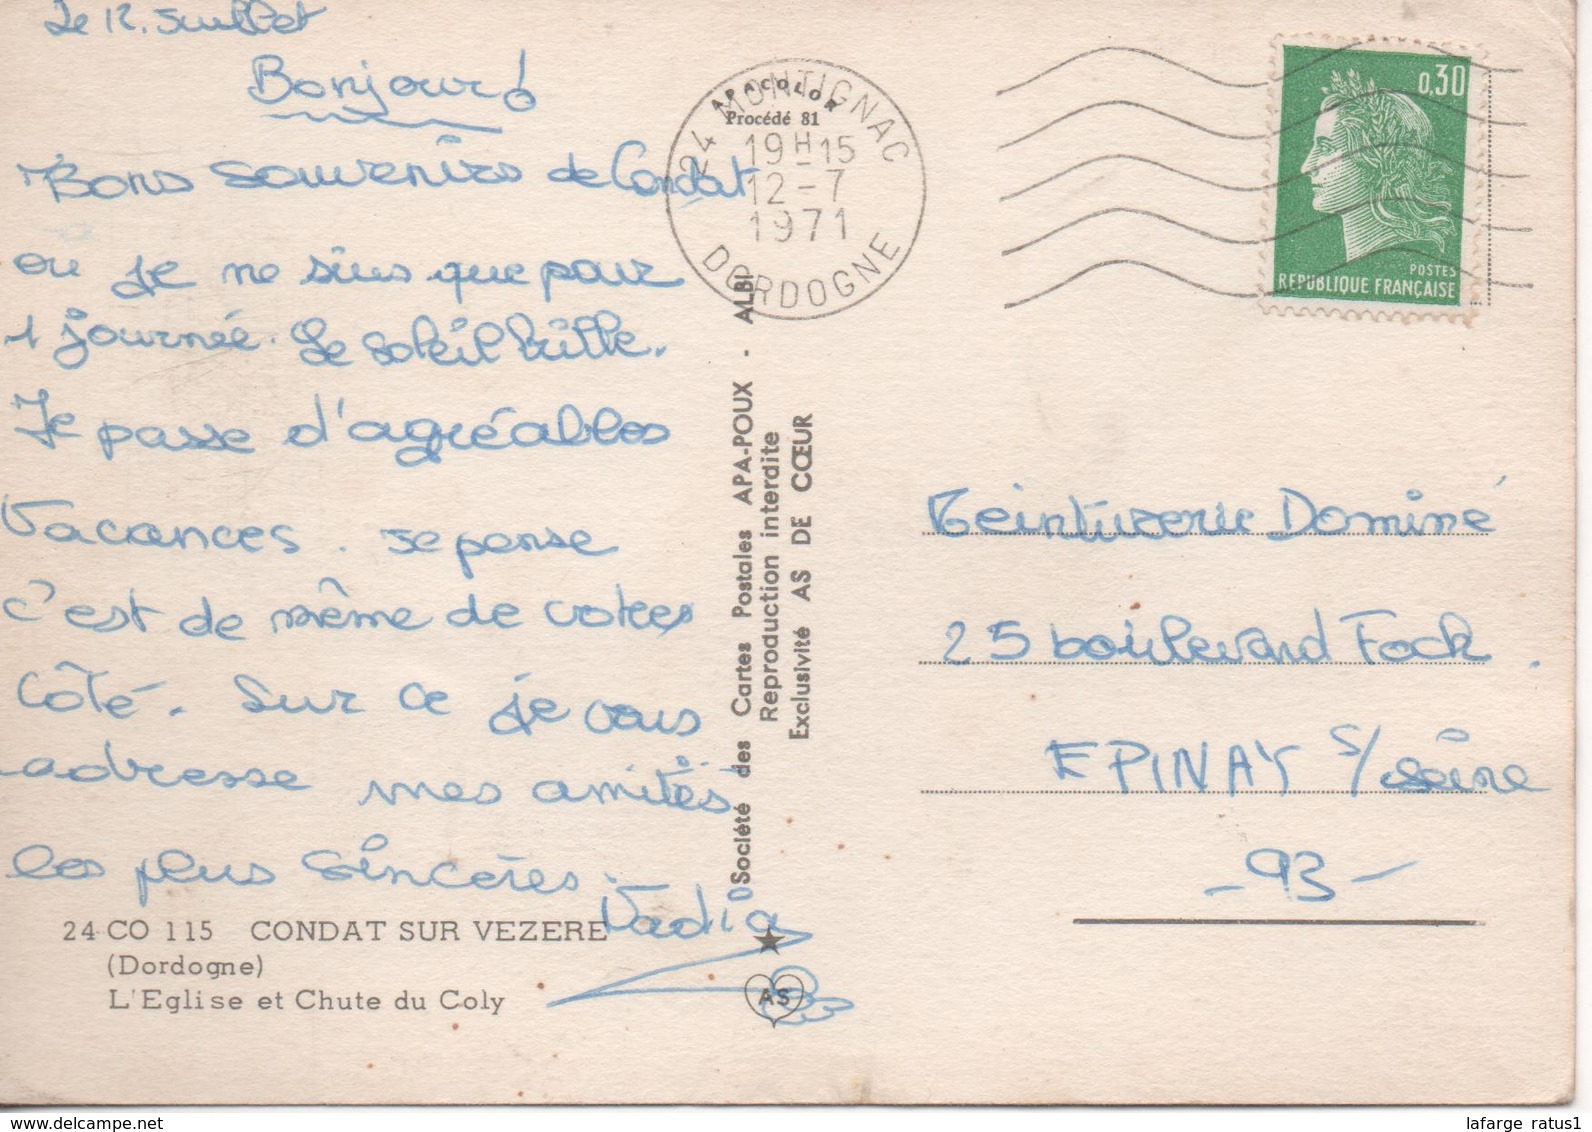 Le 12. Juillet
Bonjour!
Bons souvenirs de Condat
où je ne suis que pour
1 journée. Le soleil brille.
Je passe d'agréables
Vacances. Je pense
c'est de même de votres
côté. Sur ce je vous
adresse mes amitiés
les plus sincères.
Nadia
24 CO 115 CONDAT SUR VEZERE
(Dordogne)
L'Eglise et Chute du Coly
APACOLOR
Procédé 81
24 MONTIGNAC
19H-15
12-7
1971
DORDOGNE
Société des Cartes Postales APA-POUX - ALBI
Reproduction interdite
Exclusivité AS DE CŒUR
AS
0,30
POSTES
REPUBLIQUE FRANÇAISE
Teinturerie Dominé
25 boulevard Foch.
EPINAY S/Seine
-93-
delcampe.net
lafarge ratus1